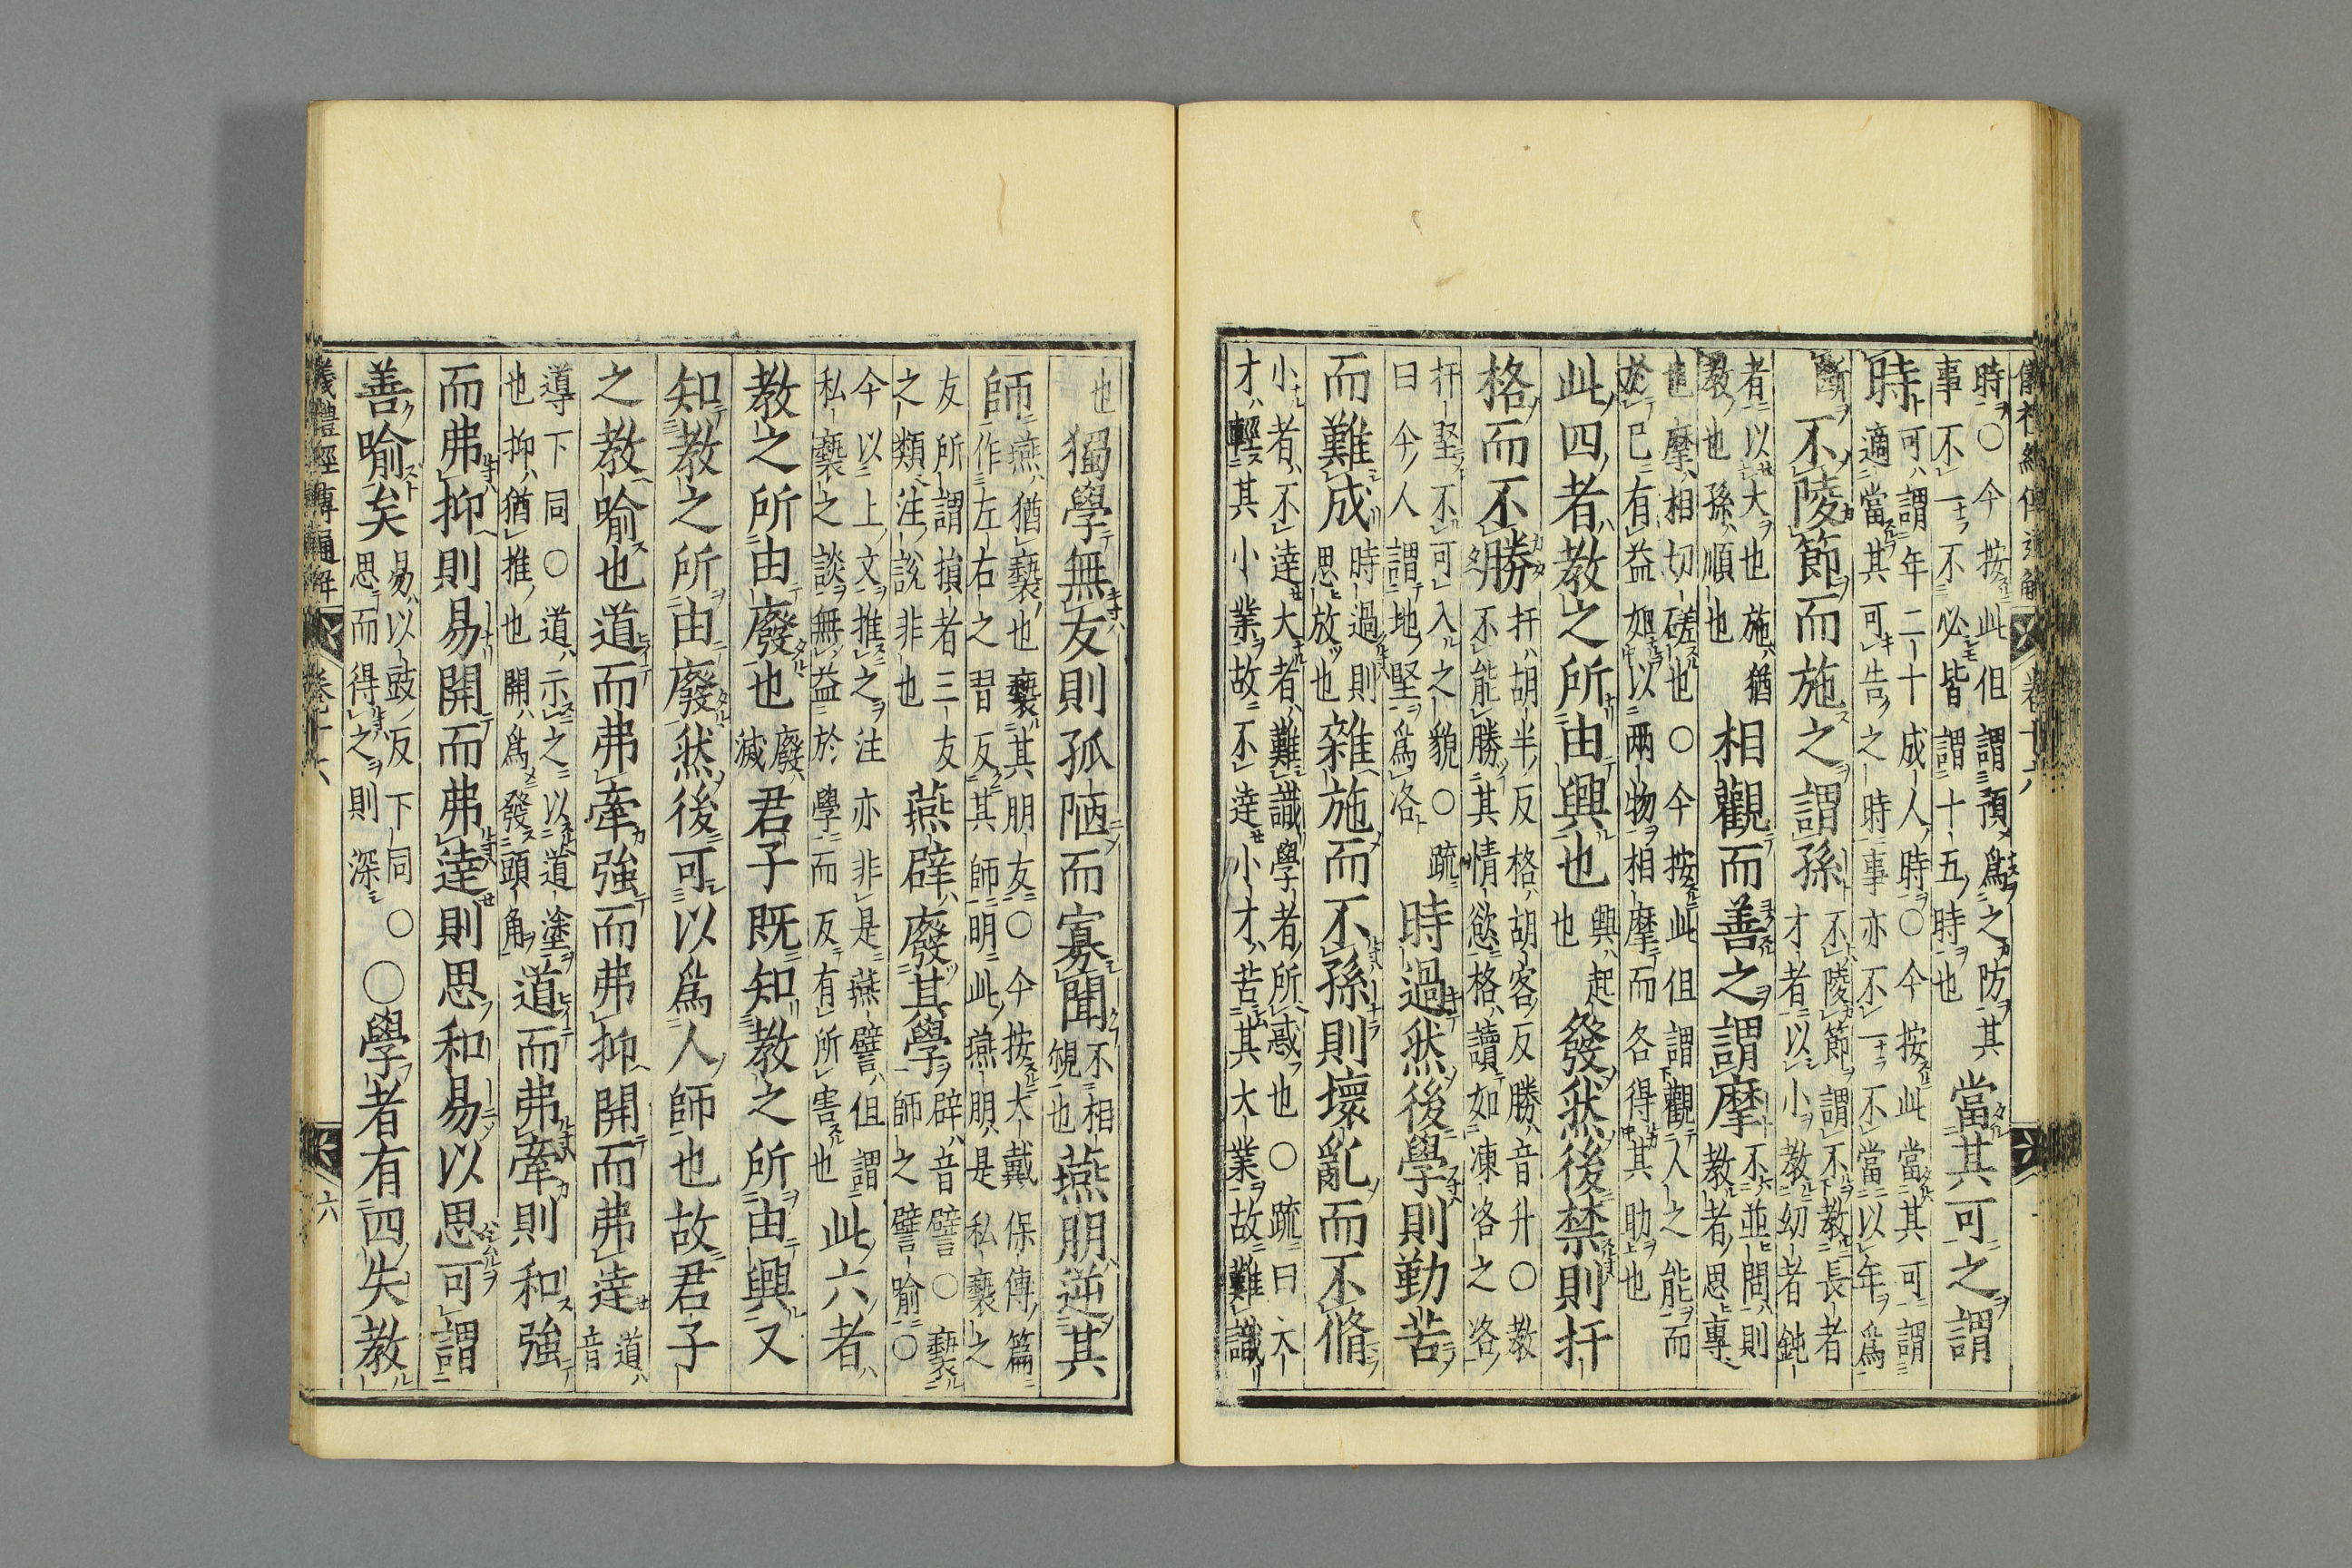 儀禮經傳通解 卷十六
時○今按此但謂預爲之防其
事不一不必皆謂十五時也
當其可之謂
時
可謂年二十成人時○今按此當其可謂
適當其可告之時事亦不一不當以年爲
斷
不陵節而施之謂孫
不陵節謂不教長者
才者以小教幼者鈍
者以大也施猶
教也孫順也
相觀而善之謂摩
不並問則
教者思專
也摩相切磋也○今按此但謂觀人之能而
於已有益如以兩物相摩而各得其助也
此四者教之所由興也
興起
也
發然後禁則扞
格而不勝
扞胡半反格胡客反勝音升○教
不能勝其情慾格讀如凍洛之洛
扞堅不可入之貌○疏
曰今人謂地堅爲洛
時過然後學則勤苦
而難成
時過則
思放也
雜施而不孫則壞亂而不脩
小者不達大者難識學者所惑也○疏曰大
才輕其小業故不達小才苦其大業故難識
也
獨學無友則孤陋而寡聞
不相
覩也
燕朋逆其
師
燕猶褻也褻其朋友○今按大戴保傅篇
作左右之習反其師明此燕朋是私褻之
友所謂損者三友
之類注說非也
燕辟廢其學
辟音譬○褻
師之譬喻○
今以上文推之注亦非是燕譬但謂
私褻之談無益於學而反有所害也
此六者
教之所由廢也
廢
滅
君子既知教之所由興又
知教之所由廢然後可以爲人師也故君子
之教喻也道而弗牽強而弗抑開而弗達
道
音
導下同○道示之以道塗
也抑猶推也開爲發頭角
道而弗牽則和強
而弗抑則易開而弗達則思和易以思可謂
善喻矣
易以豉反下同○
思而得之則深
○學者有四失教
儀禮經傳通解 卷十六 六